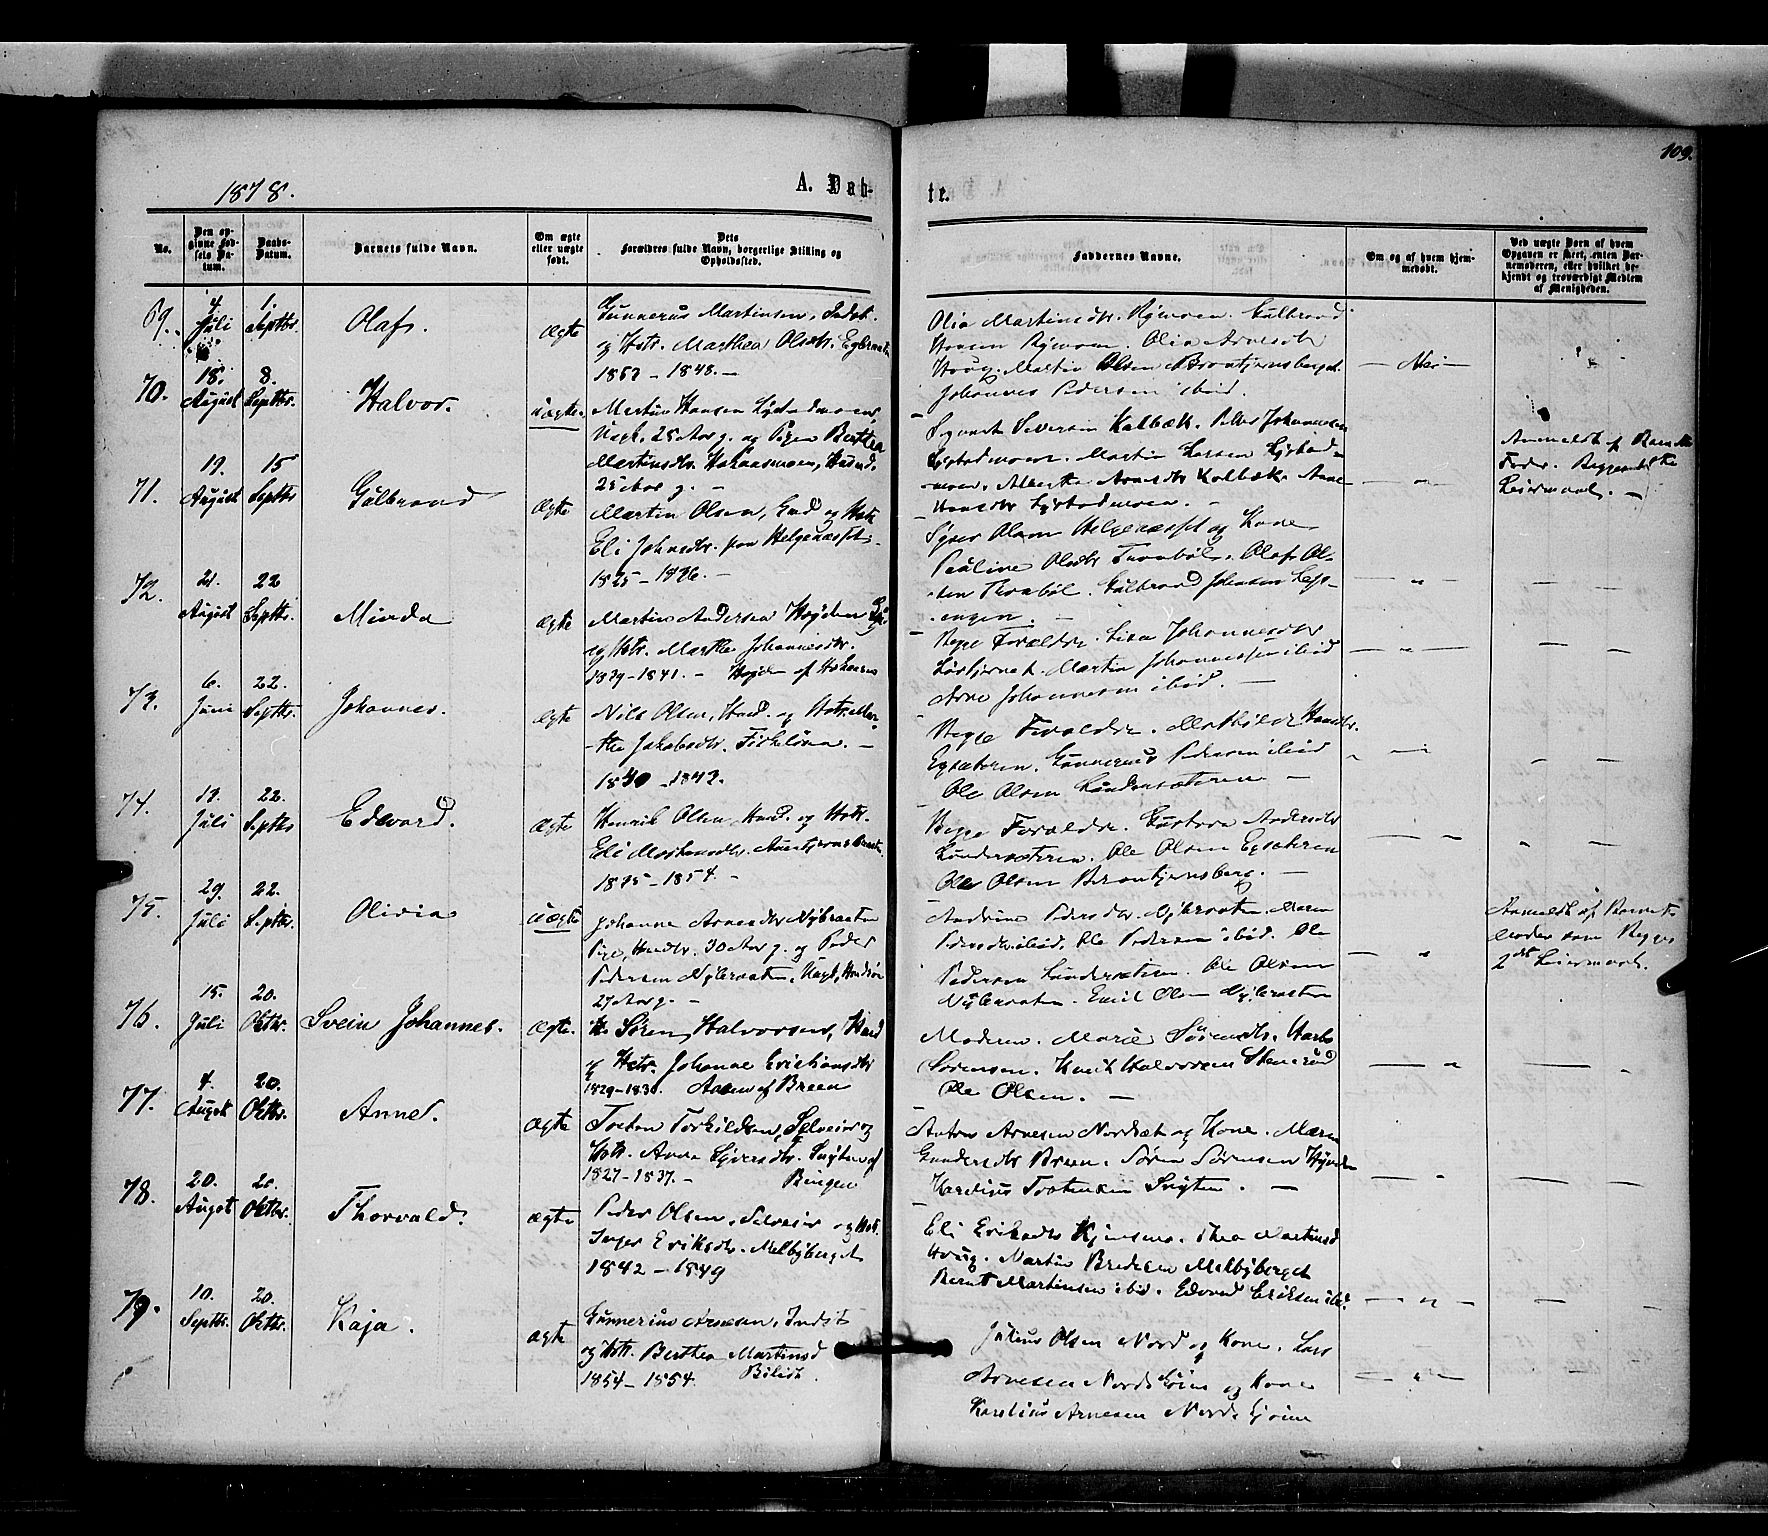 109.
1878.
A. Døb-
te.
No.
Den opgivne Fødsels Datum.
Daabs-Datum.
Barnets fulde Navn.
Om ægte eller uægte født.
Dets Forældres fulde Navn, borgerlige Stilling og Opholdssted.
Faddernes Navne.
Om og af hvem hjemmedøbt.
Ved uægte Børn af hvem Opgaven er skeet, enten Barnemoderen, eller hvilket bekjendt og troværdigt Medlem af Menigheden.
69. 4 Juli 1. Septbr. Olaf. Ægte
Gunnerus Martinsen, Indst.
og Hstr. Marthea Olsdtr.
1857 – 1848. –
Olia Martinsdtr. Gulbrand
Hansen Olia Arnesdtr
Houg. Martin Olsen Brontjernsberget
Johannes Pedersen ibid.
– Nei –
70. 18. August 8. Septbr. Halvor. Uægte.
Martin Hansen
Ungk. 25 Aar g. og Pigen Berthea
Martinsdtr.
25 Aar g. –
Syvert Seversen Kalbæk. Peter Johannesen
Martin Larsen
Alberthe Arnesdtr Kalbæk. Anne
Hansdtr
Anmeldt af Barnets
Fader. Begges 1ste
Leiermaal. –
71. 19. August 15 Septbr Gulbrand Ægte
Martin Olsen, Gmd og Hstr
Eli Johnsdtr. paa Helgenæsset.
1825 – 1836. –
Syver Olsen Helgenæsset og Kone
Pauline Olsdtr Tronbøl. Olaf Ol-
sen Tronbøl. Gulbrand Johansen
72. 21. August 22 Septbr. Minda Ægte
Martin Andersen Høgden
og Hstr. Marthe Johannesdtr.
1839 – 1841. –
Begge Forældre. Lisa Johannesdtr
Martin Johannessen ibid
Arne Johannesen ibid. –
73. 6. Juni 22. Septbr. Johannes. Ægte
Nils Olsen, Hmd. og Hstr. Mar-
the Jakobsdtr. –
1840 – 1842.
Begge Forældre. Mathilde Hansdtr.
Egsæteren. Gunnerus Pedersen ibid
Ole Olsen Lundersæteren –
74. 17. Juli 22. Septbr Edvard. Ægte
Henrik Olsen Hmd. og Hstr.
Eli
1825 – 1854. –
Begge Forældre. Gustava Andersdtr
Lundersæteren. Ole Olsen Egsæteren
Ole Olsen Brontjernsberg. –
75. 29. Juli 22. Septbr. Olivia Uægte
Johanne Arnesdtr Nybraaten
Pige, 30 Aar g. og Peder
Pedersen Nybraaten, Ungk,
27 Aar g. –
Andrine Pedersdtr. Nybraaten. Maren
Pedersdtr ibid. Ole Pedersen ibid. Ole
Pedersen Lundersæteren. Ole Olsen
Nybraaten. Emil Olsen Nybraaten
Anmeldt af Barnets
Moder som Begges
2det Leiermaal.
76. 15. Juli 20. Oktbr. Svein Johannes. Ægte.
Søren Halvorsen, Hmd
og Hstr. Johanne Cristiansdtr
1829 – 1830. Aasen af Breen
Moderen. Marie Sørensdtr.
Sørensen. Knut Halvorsen Stensrud
Ole Olsen. –
77. 4. August 20. Oktbr. Anne. Ægte
Tosten Torkildsen, Selveier og
Hstr. Anne Syversdtr. Snyten af
1827 – 1837. – Bingen
Anton Arnesen Nordset og Kone. Maren
Gundersdtr Breen. Søren Sørensen
Karelius Tostensen Snyten. –
78. 20. August 20. Oktbr. Thorvald. Ægte
Peder Olsen, Selveier og Hstr.
Inger Eriksdtr. Melbyberget
1842 – 1849
Eli Eriksdtr Thea Martinsd
Houg. Martin Bredesen Melbyberget
Bernt Martinsen ibid. Edvard Eriksen ibid.
79. 10. Septbr. 20. Oktbr. Kaja. Ægte
Gunnerius Arnesen, Indst
og Hstr. Berthea Martinsd
1854 – 1854.
Julius Olsen Nord og Kone. Lars
Arnesen og Kone
Karelius Arnesen